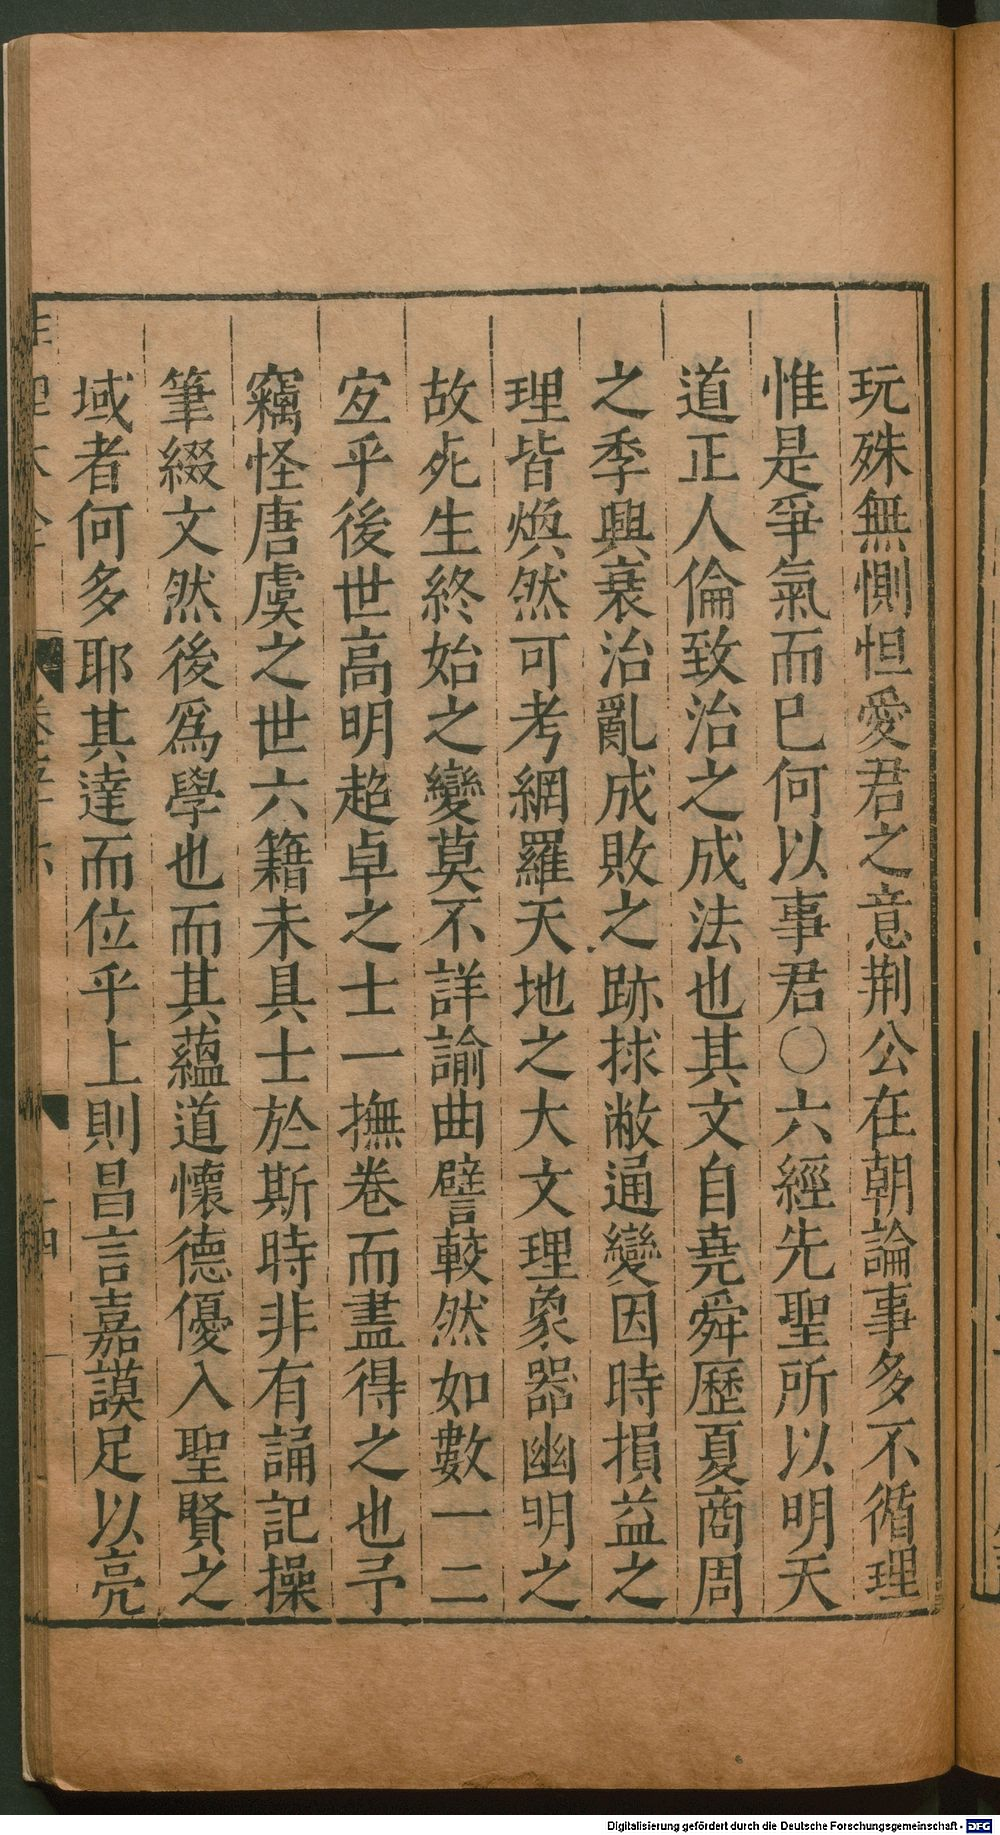 玩殊無惻怛愛君之意荆公在朝論事多不循理
惟是爭氣而已何以事君〇六經先聖所以明天
道正人倫致治之成法也其文自堯舜歷夏商周
之季興衰治亂成敗之跡捄敝通變因時損益之
理皆煥然可考網羅天地之大文理象器幽明之
故死生終始之變莫不詳諭曲譬較然如數一二
宜乎後世高明超卓之士一撫卷而盡得之也予
竊怪唐虞之世六籍未具士於斯時非有誦記操
筆綴文然後爲學也而其蘊道懷德優入聖賢之
域者何多耶其達而位乎上則昌言嘉謨足以亮
Digitalisierung gefördert durch die Deutsche Forschungsgemeinschaft - DFG